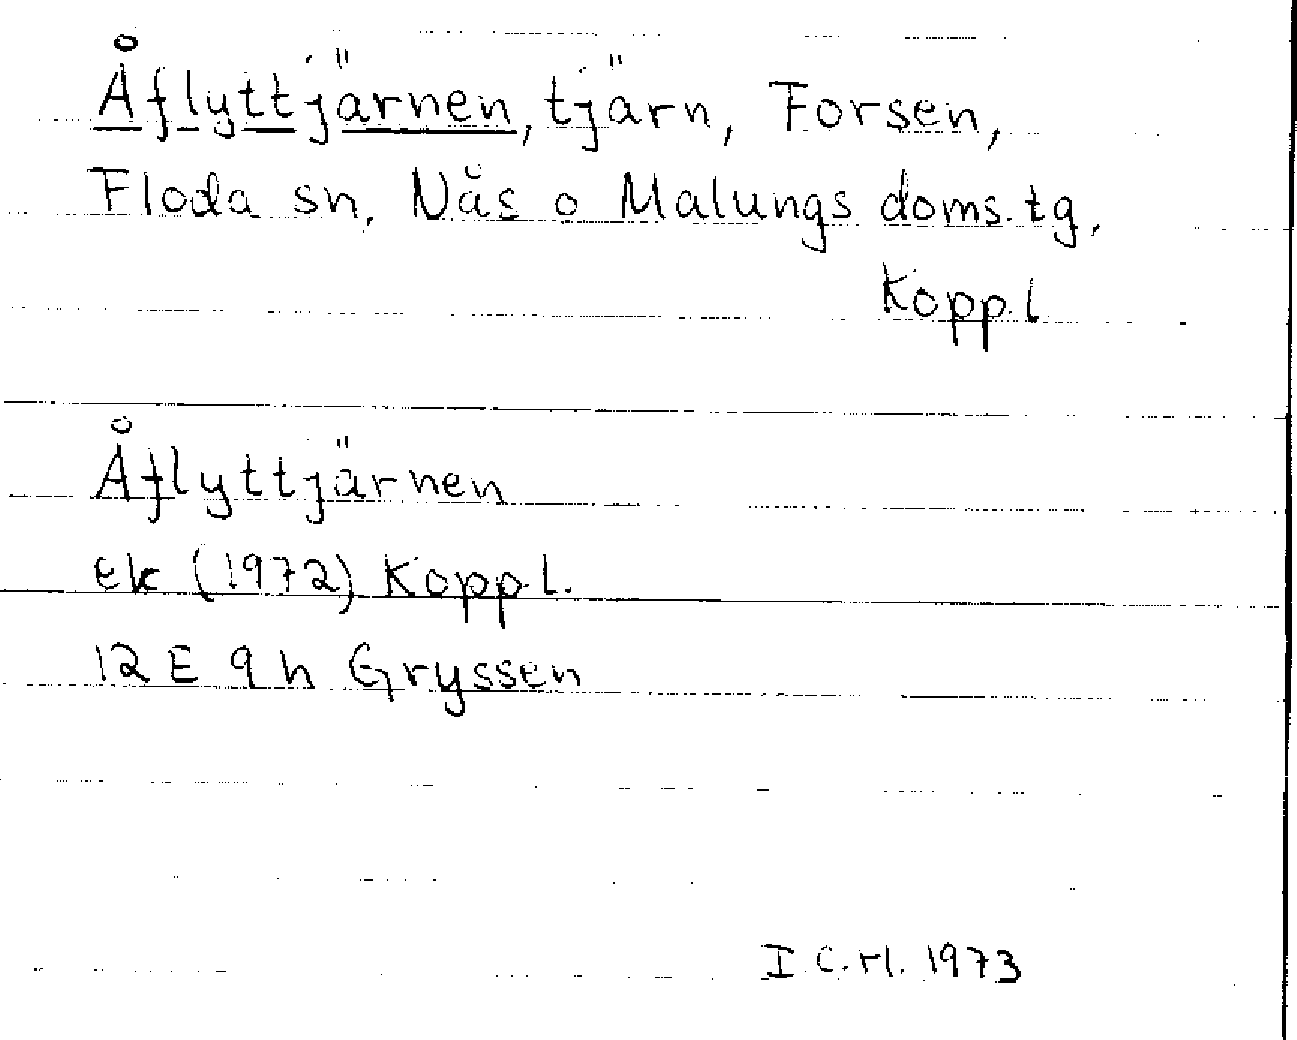 Åflyttjärnen, tjärn, Forsen,
Floda sn, Nås o Malungs doms.tg,
Kopp.l
Åflyttjärnen
ek (1972) Kopp.l.
12 E 9 h Gryssen
I C.H. 1973